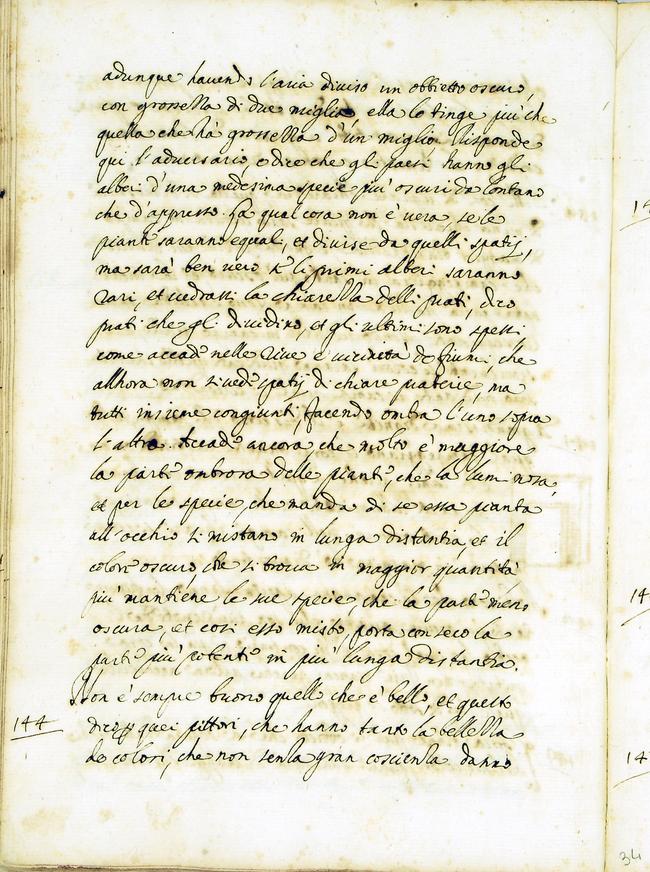 adunque havendo l'aria diviso un obbietto oscuro,
con grossezza di due miglia, ella lo tinge più che
quella che hà grossezza d'un miglio. Risponde
qui l'adversario, e dice che gli paesi hanno gli
alberi d'una medesima specie più oscuri da lontano
che d'appresso. La qual cosa non è vera, se le
piante saranno equali, et divise da quelli spatij,
ma sarà ben vero se li primi alberi saranno
rari, et vedrassi la chiarezza delli prati, dico
prati che gli dividino, et gli ultimi sono spessi
come accade nelle rive e vicinità de fiumi, che
allhora non si vede spatij di chiare praterie, ma
tutti insieme congiunti, facendo ombra l'uno sopra
l'altro. Accade ancora, che molto è maggiore
la parte ombrosa delle piante, che la luminosa,
et per le specie, che manda di se essa pianta
all'occhio si mistano in lunga distantia, et il
colore oscuro, che si trova in maggior quantità
più mantiene le sue specie, che la parte meno
oscura, et così esso misto, porta con seco la
parte più potente in più lunga distantia.
Non è sempre buono quello che è bello, et questo
144
dico p quei pittori, che hanno tanto la bellezza
de colori, che non senza gran coscienza danno
14
14
14
34